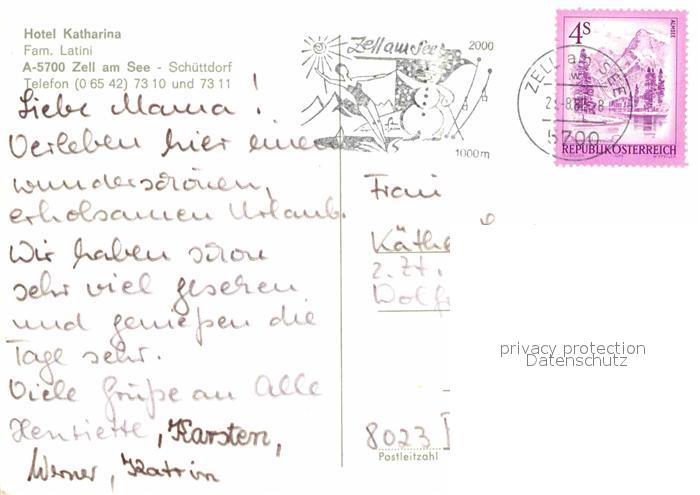 Hotel Katharina
Fam. Latini
A-5700 Zell am See - Schüttdorf
Telefon (0 65 42) 73 10 und 73 11
Liebe Mama!
Verleben hier einen
wunderschönen,
erholsamen Urlaub.
Wir haben schon
sehr viel gesehen
und genießen die
Tage sehr.
Viele Grüße an Alle
Henriette, Karsten,
Werner, Katrin
Zell am See
2000
1000m
ZELL am SEE
5700
4S
ALMSEE
REPUBLIK ÖSTERREICH
Frau
Käthe
z. Zt.
Wolf
privacy protection
Datenschutz
8023
Postleitzahl